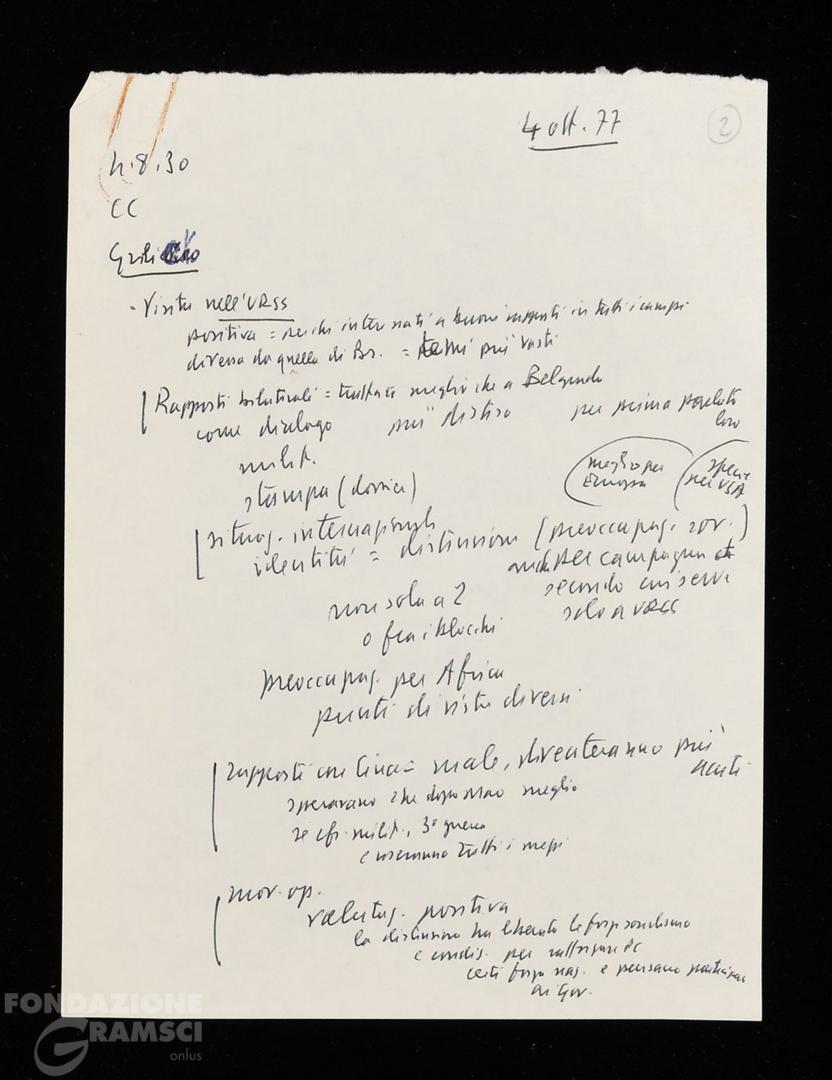 4 ott. 77
2
h. 8.30
CC
- Visita nell'URSS
positiva = perché interessati a buoni rapporti in tutti i campi
diversa da quella di Br. = temi più vasti
Rapporti bilaterali = trattati meglio che a Belgrado
come dialogo più disteso per prima parlato
loro
milit.
stampa (
meglio per
Europa
specie
per USA
situaz. internazionale
identità = distensione (preoccupaz. sov.)
anche per campagna
secondo cui serve
solo a URSS
non solo a 2
o fra i blocchi
preoccupaz. per Africa
punti di vista diversi
rapporti con Cina = male, diventeranno più
acuti
speravano che dopo Mao meglio
se cfr. milit., 3ª guerra
e useranno tutti i mezzi
mov. op.
valutaz. positiva
la distensione ha liberato le forze socialismo
e condiz. per rafforzare PC
certi forza naz. e pensano partecipare
ai gov.
FONDAZIONE
GRAMSCI
onlus